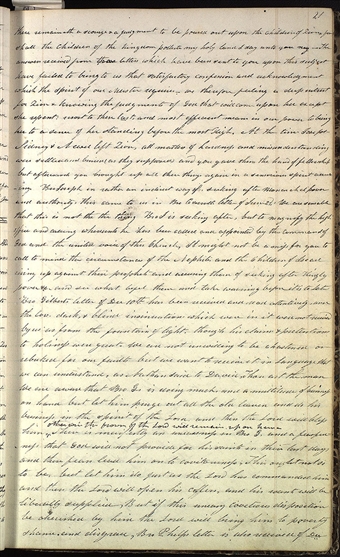 21
there remaineth a scourge & a judgment to be poured out upon the children of Zion, for
shall the children of the kingdom pollute my holy land I say unto you nay — the
answers received from those letters which have been sent to you upon this subject
have failed to bring to us that satisfactory confession and acknowledgment
which the spirit of our Master requires, we therefore feeling a deep interest
for Zion & knowing the judgments of God that will come upon her except
she repent, resort to these last and most efficient means in our power to bring
her to a sense of her standing before the most high. At the time Joseph
Sidney & Newel left Zion, all matters of hardness and misunderstanding
were settled and buried as they supposed and you gave them the hand of fellowship
but afterwards you brought up all these things again in a censorious spirit accus-
ing Br Joseph in rather an indirect way of seeking after monarchal power
and authority this came to us in Br Carrolls letter of June 2d. We are sensible
that this is not the thing Br J is seeking after, but to magnify the high
office and calling whereunto he has been called and appointed by the command of
God and the united voice of this Church, It might not be amiss for you to
call to mind the circumstances of the Nephites and the children of Israel
rising up against their prophets and accusing them of seeking after Kingly
power &c. and see what befel them and take warning before it is to late
Bro Gilberts letter of Dec 10th has been received and read attentively and
the low, dark, & blind insinuation which were in it were not received
by us as from the fountain of light, though his claims & pretentions
to holiness were great. We are not unwilling to be chastened or
rebuked for our faults but we want to receive it in language that
we can understand, as Nathan said to David Thou art the man.
We are aware that Bro G. is doing much and a multitude of business
on hand but let him purge out all the old leaven and do his
business in the spirit of the Lord and then the Lord will bless
him, otherwise the frown of the Lord will remain upon him
There is manifestly an uneasiness in Bro G. and a fearful-
ness that God will not provide for his saints in these last days
and these fears lead him on to covetousness, This ought not so
to be. but let him do just as the Lord has commanded him
and then the Lord will open his coffers, and his wants will be
liberally supplied, But if this uneasy covetous disposition
be cherished by him the Lord will bring him to poverty
shame and disgrace, Bro Phelps letter is also received of Dec